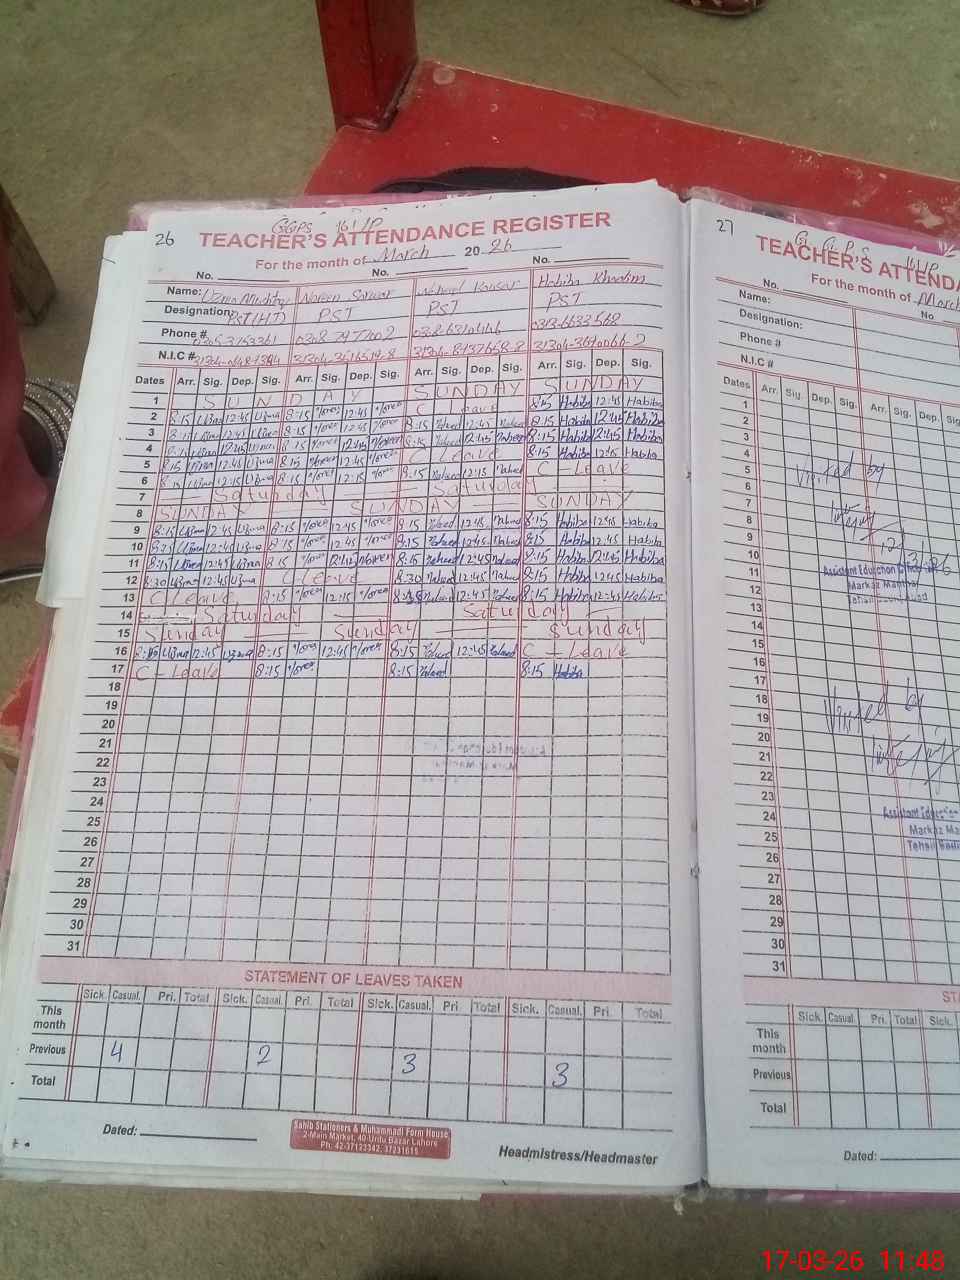 26
GGPS 161/P
TEACHER'S ATTENDANCE REGISTER
For the month of March 2026
No. No. No.
Name: Uzma Mushtaq Noreen Sarwar Kousar Habiba Khadim
Designation: PST(HT) PST PST PST
Phone #
N.I.C #
Dates Arr. Sig. Dep. Sig. Arr. Sig. Dep. Sig. Arr. Sig. Dep. Sig. Arr. Sig. Dep. Sig.
1 SUNDAY SUNDAY SUNDAY
2 8:15 Uzma 12:45 Uzma 8:15 Noreen 12:45 Noreen C Leave 8:15 Habiba 12:45 Habiba
3 8:15 Uzma 12:45 Uzma 8:15 Noreen 12:45 Noreen 8:15 Naheed 12:45 Naheed 8:15 Habiba 12:45 Habiba
4 Uzma 12:45 Uzma 8:15 Noreen 12:45 Noreen 8:15 Naheed 12:45 Naheed 8:15 Habiba 12:45 Habiba
5 8:15 Uzma 12:45 Uzma 8:15 Noreen 12:45 Noreen C Leave 8:15 Habiba 12:45 Habiba
6 8:15 Uzma 12:15 Uzma 8:15 Noreen 12:15 Noreen 8:15 Naheed 12:15 Naheed C Leave
7 Saturday Saturday
8 SUNDAY SUNDAY SUNDAY
9 8:15 Uzma 12:45 Uzma 8:15 Noreen 12:45 Noreen 8:15 Naheed 12:45 Naheed 8:15 Habiba 12:45 Habiba
10 Uzma 12:45 Uzma 8:15 Noreen 12:45 Noreen 8:15 Naheed 12:45 Naheed 8:15 Habiba 12:45 Habiba
11 8:15 Uzma 12:45 Uzma 8:15 Noreen 12:45 Noreen 8:15 Naheed 12:45 Naheed 8:15 Habiba 12:45 Habiba
12 8:30 Uzma 12:45 Uzma C Leave 8:30 Naheed 12:45 Naheed 8:15 Habiba 12:45 Habiba
13 C Leave 8:15 Noreen 12:15 Noreen Naheed 12:45 Naheed 8:15 Habiba 12:45 Habiba
14 Saturday Saturday
15 Sunday Sunday Sunday
16 Uzma 12:45 Uzma 8:15 Noreen 12:45 Noreen 8:15 Naheed 12:45 Naheed C - Leave
17 C - Leave 8:15 Noreen 8:15 Naheed 8:15 Habiba
18
19
20
21
22
23
24
25
26
27
28
29
30
31
STATEMENT OF LEAVES TAKEN
Sick. Casual. Pri. Total Sick. Casual. Pri. Total Sick. Casual. Pri. Total Sick. Casual. Pri. Total
This month
Previous 4 2 3 3
Total
Dated:
Sahib Stationers & Muhammadi Form House
2-Main Market, 40-Urdu Bazar Lahore
Ph. 42-37123342, 37231615
Headmistress/Headmaster
27
G. G. P. S 161/P
TEACHER'S ATTEND
For the month of March
No. No
Name:
Designation:
Phone #
N.I.C #
Dates Arr. Sig. Dep. Sig. Arr. Sig. Dep. Sig.
1
2
3
4
5 Visited by
6
7
8
9
10
11 Assistant Education
12 Markaz
13 Tehsil
14
15
16
17
18 Visited by
19
20
21
22
23
24 Assistant Education
25 Markaz Ma
26 Tehsil
27
28
29
30
31
STA
Sick. Casual. Pri. Total Sick.
This month
Previous
Total
Dated:
17-03-26 11:48